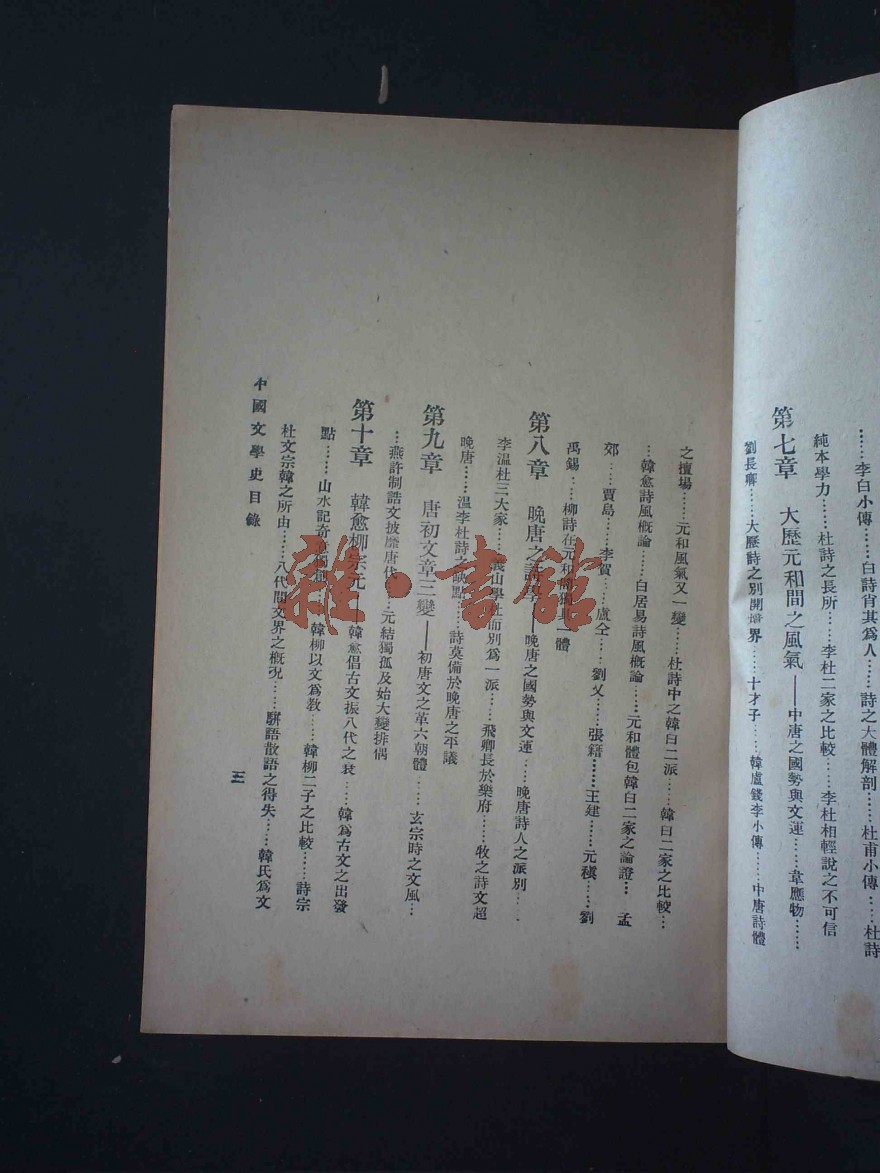 ……李白小傳……白詩肖其爲人……詩之大體解剖……杜甫小傳……杜詩
純本學力……杜詩之長所……李杜二家之比較……李杜相輕說之不可信
第七章　大歷元和間之風氣——中唐之國勢與文運……韋應物……
劉長卿……大歷詩之別開境界……十才子……韓盧錢李小傳……中唐詩體
之擅場……元和風氣又一變……杜詩中之韓白二派……韓白二家之比較…
…韓愈詩風概論……白居易詩風概論……元和體包韓白二家之論證…孟
郊……賈島……李賀……盧仝……劉叉……張籍……王建……元稹……劉
禹錫……柳詩在元和間獨具一體
第八章　晚唐之詩學——晚唐之國勢與文運……晚唐詩人之派別……
李溫杜三大家……義山學杜而別爲一派……飛卿長於樂府……牧之詩文超
晚唐……溫李杜詩之缺點……詩莫備於晚唐之平議
第九章　唐初文章三變——初唐文之革六朝體……玄宗時之文風…
…燕許制誥文披靡唐代……元結獨孤及始大變排偶
第十章　韓愈柳宗元——韓愈倡古文振八代之衰……韓爲古文之出發
點……山水記奇意獨創……韓柳以文爲教……韓柳二子之比較……詩宗
杜文宗韓之所由……八代間文界之概況……駢語散語之得失……韓氏爲文
中國文學史目錄
三
雜·書館